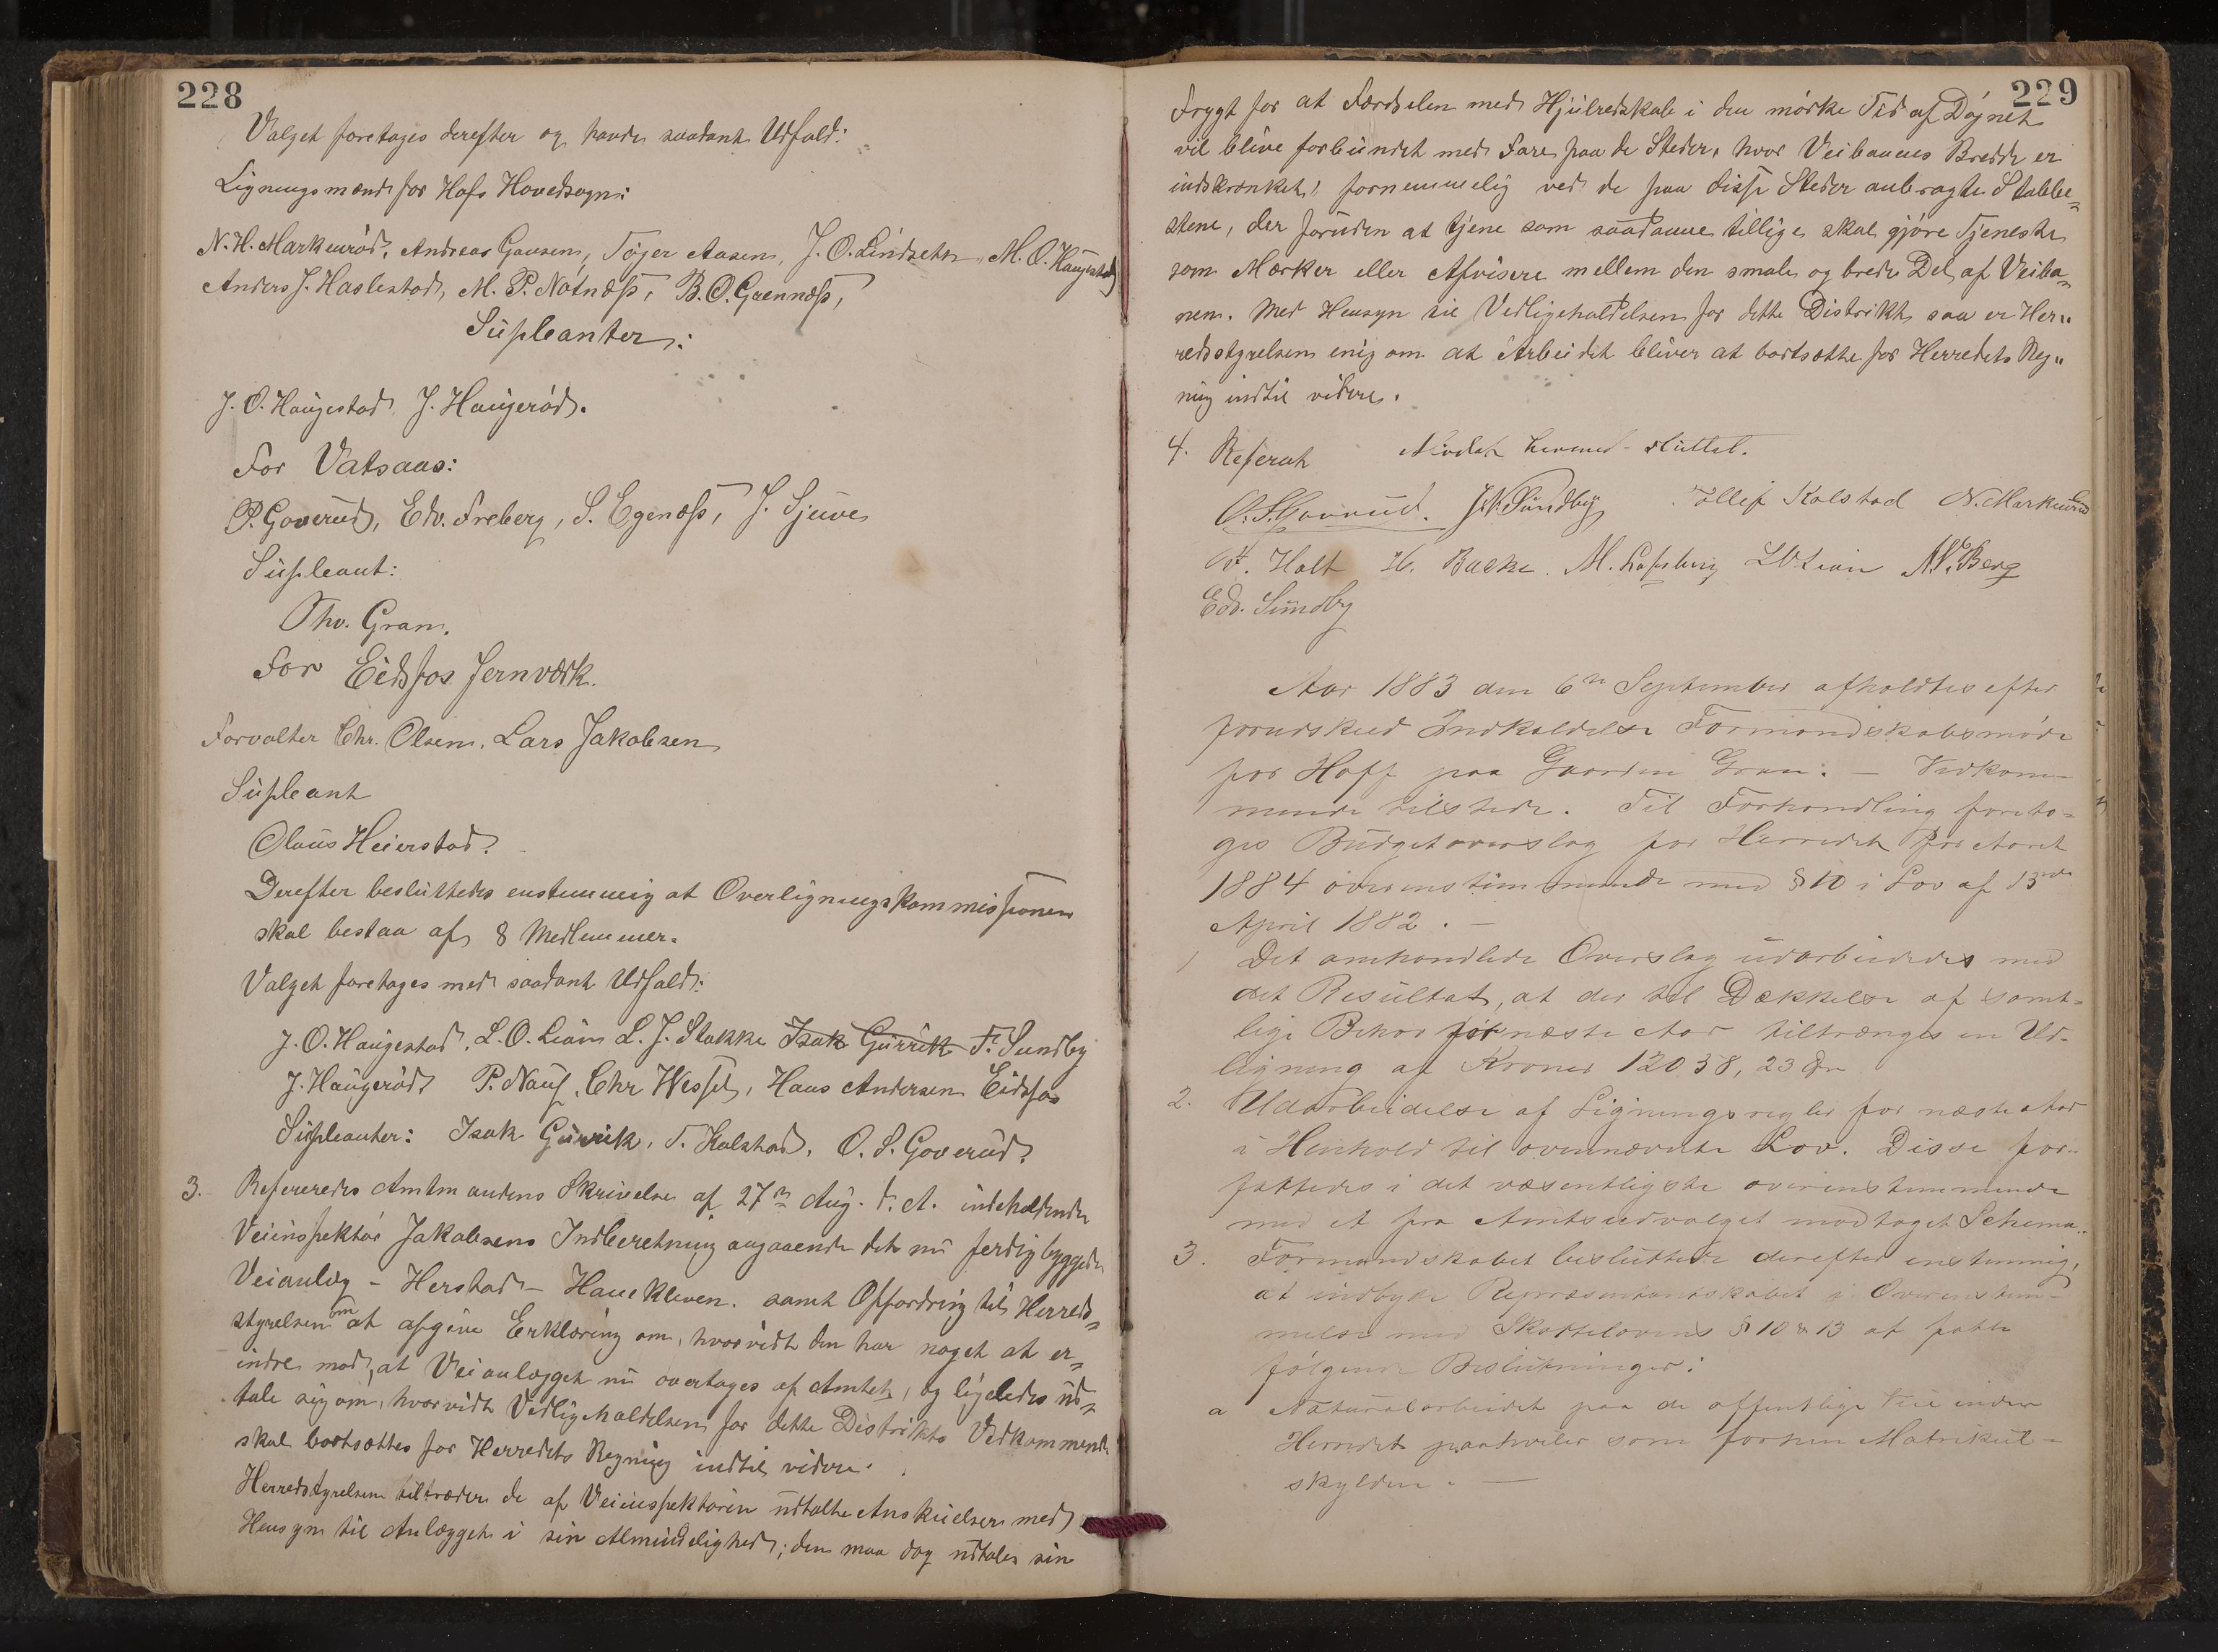 228
Valget foretages derefter og havde saadant Udfald:
Ligningsmænd for Hofs Hovedsogn:
N. H. Markerød, Andreas Gausen, Tøger Aasen, J. O. Lindseth, M. O. Haugestad,
Anders J. Haslestad, M. P. Nøtnæss, B. O. Grennæss,
Supleanter:
J. O. Haugestad, J. Haugerød.
For Vatsaas:
P. Goverud, Edv. Freberg, S. Egenæss, J. Sjuve
Supleant:
Thv. Gran.
For Eidsfos Jernværk.
Forvalter Chr. Olsen, Lars Jakobsen
Supleant
Olaus Heierstad.
Derefter besluttedes enstemmig at Overligningskommissionen
skal bestaa af 8 Medlemmer.
Valget foretages med saadant Udfald:
J. O. Haugestad, L. O. Liain L. J. Stakke Isak Gurrik F. Sundby
J. Haugerød P. Nauf, Chr Wessel, Hans Andersen Eidsfos
Supleanter: Isak Gurrik, T. Kolstad, O. S. Goverud.
3. Refereredes Amtmandens Skrivelse af 27n Aug. d. A. indeholdende
Veiinspektør Jakobsens Indberetning angaaende det nu ferdig byggede
Veianlæg - Herstad - Hanekleven. samt Opfordring til Herreds-
styrelsen om at afgive Erklæring om, hvorvidt den har noget at er-
indre mod, at Veianlægget nu overtages af Amtet, og ligeledes ud-
tale sig om, hvorvidt Vedligeholdelsen for dette Distrikts Vedkommende
skal bortsættes for Herredets Regning indtil videre.
Herredstyrelsen tiltræder de af Veiinspektøren udtalte Anskuelser med
Hensyn til Anlægget i sin Almindelighed; den maa dog udtale sin
229
Frygt for at Færdselen med Hjulredskab i den mørke Tid af Døgnet
vil blive forbundet med Fare paa de Steder, hvor Veibanens Bredde er
indskrænket, fornemmelig ved de paa disse Steder anbragte Stabbe-
stene, der foruden at tjene som saadanne tillige skal gjøre Tjeneste
som Mærker eller Afvisere mellem den smale og brede Del af Veiba-
nen. Med Hensyn til Vedligeholdelsen for dette Distrikt, saa er Her-
redsstyrelsen enig om at Arbeidet bliver at bortsætte for Herredets Reg-
ning indtil videre.
4. Referat Mødet hermed sluttet.
O. S. Goverud. J. N. Sundby Tollef Kolstad N. Markerud
Holt H. Backe. M. Løfsberg L O Liain M. Berg
Edv. Sundby
Aar 1883 den 6te September afholdtes efter
forudskeed Indkaldelse Formandskabsmøde
for Hoff paa Gaarden Gran. - Vedkom-
mende tilstede. Til Forhandling foreto-
ges Budgetoverslag for Herredet for Aaret
1884 overensstemmende med § 10 i Lov af 15de
April 1882. -
1 Det omhandlede Overslag udarbeidedes med
det Resultat, at der til Dækkelse af samt-
lige Behov for næste Aar tiltrænges en Ud-
ligning af Kroner 12058,23 Øre
2. Udarbeidelse af Ligningsregler for næste Aar
i Henhold til ovennævnte Lov. Disse for-
fattedes i det væsentligste overensstemmende
med et fra Amtsudvalget modtaget Schema.
3. Formandskabet besluttede derefter enstemmig,
at indbyde Repræsentantskabet i Overenstem-
melse med Skattelovens § 10 & 13 at fatte
følgende Beslutninger:
a Naturalarbeidet paa de offentlige Veie inden
Herredet paahviler som forhen Matrikul-
skylden. -